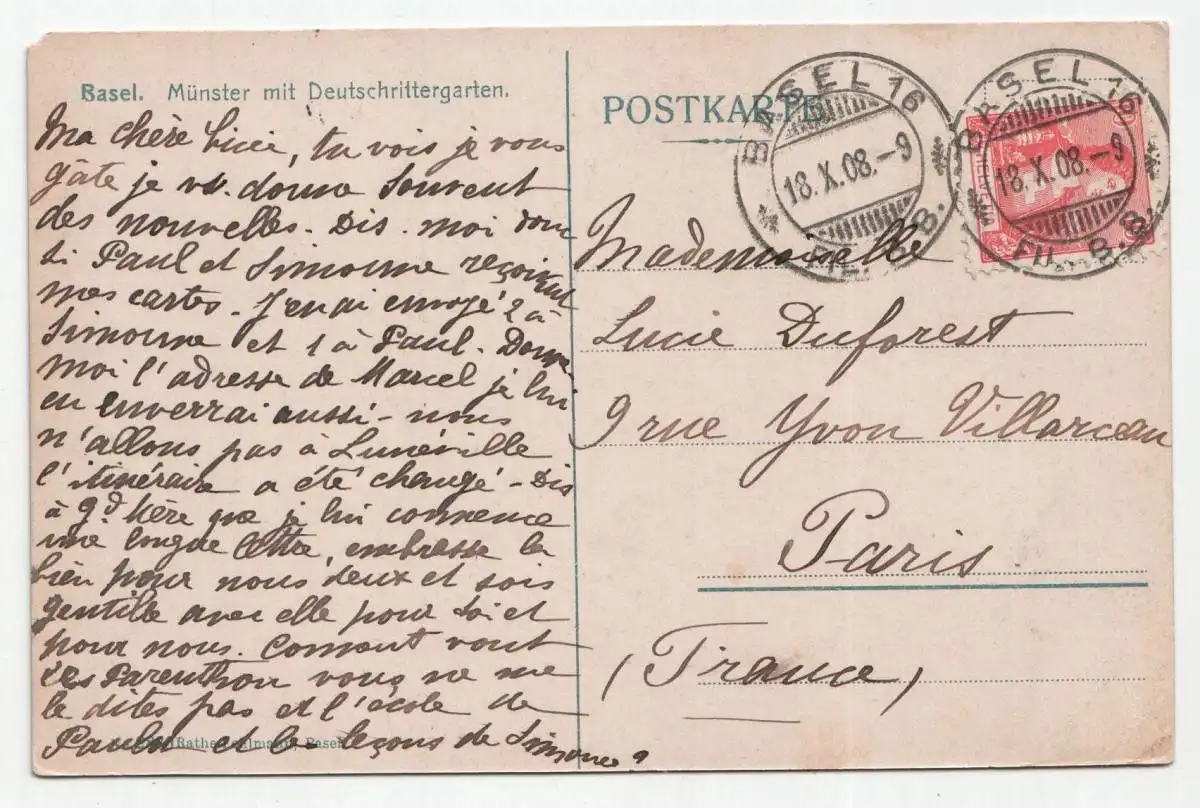 Basel. Münster mit Deutschrittergarten.
Ma chère Lucie, tu vois je vous
gâte je vs. donne souvent
des nouvelles. Dis-moi donc
si Paul et Simonne reçoivent
mes cartes. J'en ai envoyé 2 à
Simonne et 1 à Paul. Donne
moi l'adresse de Marcel je lui
en enverrai aussi - nous
n'allons pas à Lunéville
l'itinéraire a été changé - Dis
à gd. Mère que je lui commence
une longue lettre, embrasse la
bien pour nous deux et sois
gentille avec elle pour toi et
pour nous. Comment vont
les Parenthou vous ne me
le dites pas et l'école de
Paulo et les leçons de Simone ?
Basel
POSTKARTE
BASEL 16
18.X.08.-9
BASEL 16
18.X.08.-9
FIL. B.B.
Mademoiselle
Lucie Duforest
9 rue Yvon Villarceau
Paris
(France)